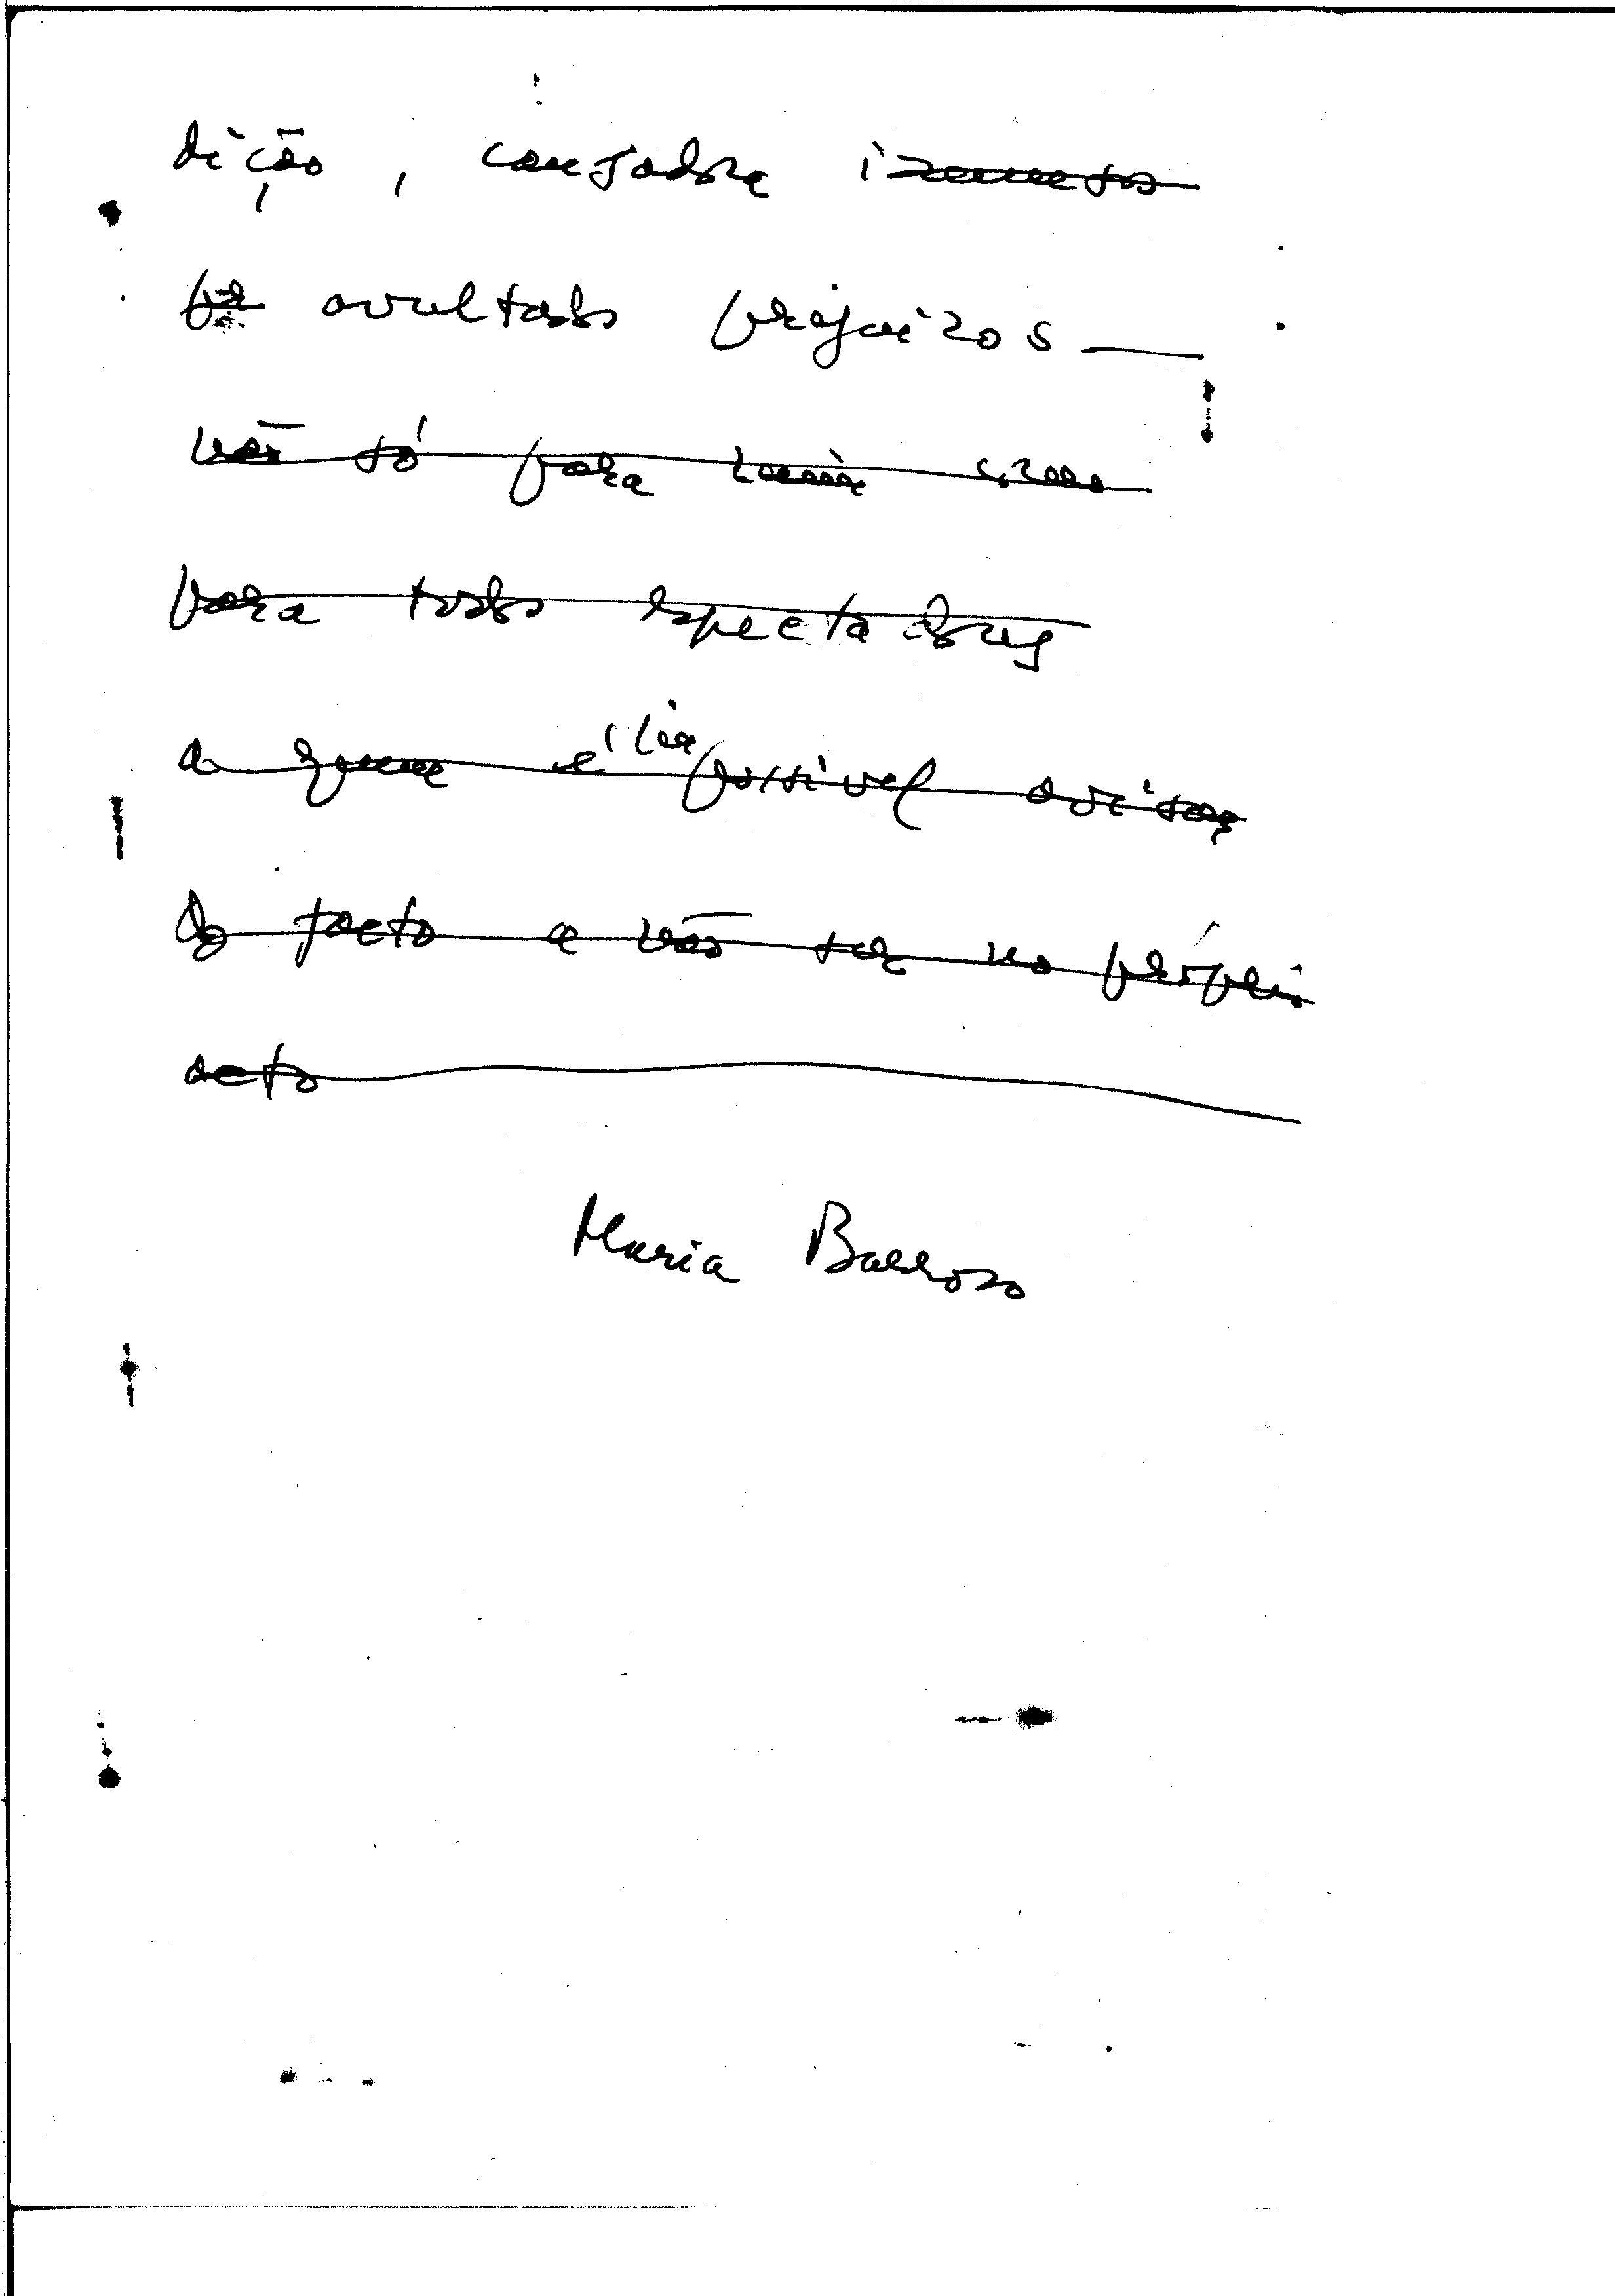 dição, causadora
avultados prejuízos
não só para mim como
para todos espectadores
a quem é impossível avisar
do facto a não ser no próprio
acto
Maria Barroso